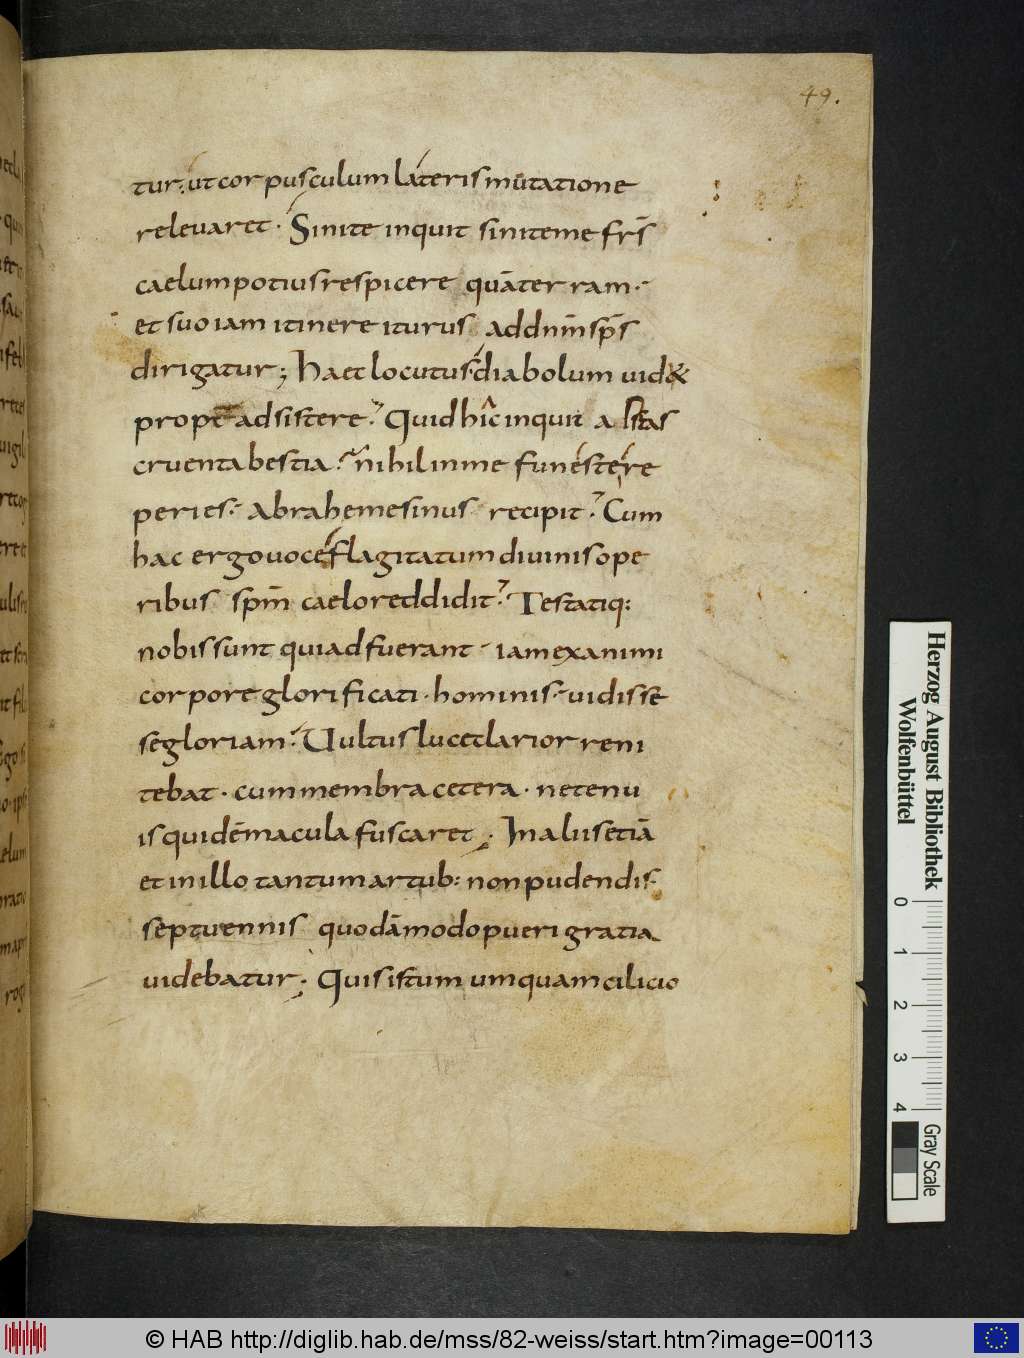 49.
tur; ut corpusculum lateris mutatione
relevaret. Sinite inquit sinite me frs̄
caelum potius respicere quā terram.
et suo iam itinere iturus ad dnm̄ sps̄
dirigatur; Haec locutus diabolum vid&
prope adsistere. Quid hic inquit astas
cruenta bestia. nihil in me funeste re
peries. Abrahe me sinus recipit. Cum
hac ergo voce flagitatum divinis ope
ribus spm̄ caelo reddidit. Testatiq:
nobis sunt qui adfuerant iam exanimi
corpore glorificati. hominis. vidisse
se gloriam. Vultus luce clarior reni
tebat. cum membra cetera. ne tenu
is quidē macula fuscaret; In aliis etiā
et in illo tantum artub: non pudendis.
septuennis quodāmodo pueri gratia
videbatur; Quis istum umquam cilicio
Herzog August Bibliothek
Wolfenbüttel
0 1 2 3 4
Gray Scale
© HAB http://diglib.hab.de/mss/82-weiss/start.htm?image=00113